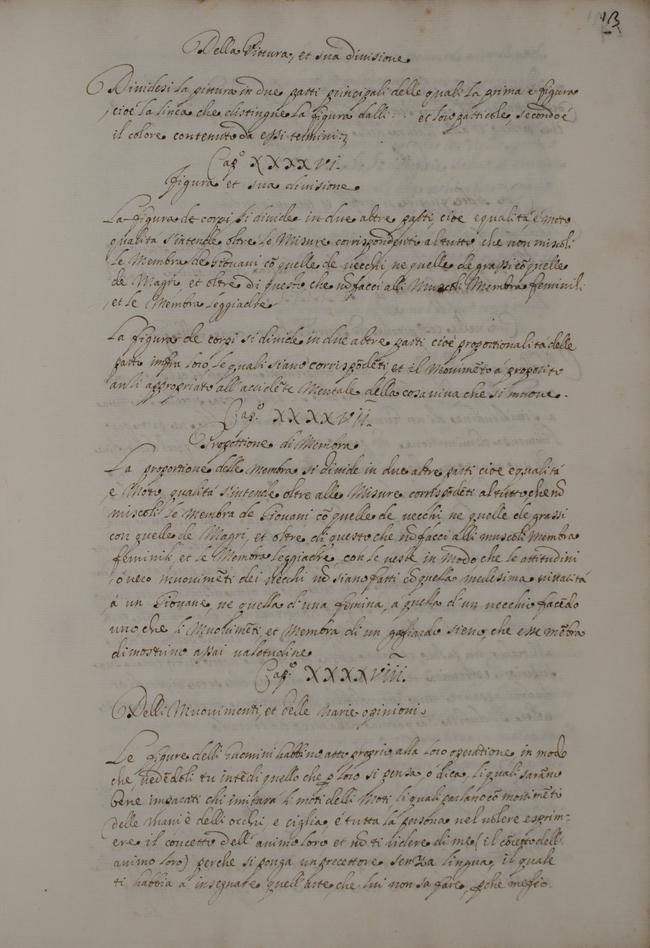 13
Della Pittura, et sua divisione
Dividesi la pittura in due parti principali delle quali la prima è figura
cioé la linea che distingue la figura dalli et loro particole, secondo é
il colore contenuto da essi termini
Cap.º XXXXVI.
figura et sua divisione
La figura de corpi si divide in due altre parti, cioe equalitá, é moto
qualitá s'intende oltre le Misure corrispondenti al tutto che non miscoli
le Membra de Giovani, cō quelle de vecchi, ne quelle de grassi cō quelle
de Magri, et oltre di questo che nō facci alli Muscoli Membra feminili
et le Membra leggiadre
La figura de corpi si divide in due altre parti cioe proportionalitá delle
parti infra loro, le quali siano corrispōdēti et il Movimēto á proposito
appropriato all'accidēte Mentale della cosa viva che si muove.
Cap.º XXXXVII.
Proportione di Membra
La proportione delle Membra si divide in due altre parti cioe equalitá
e Moto, qualitá s'intende oltre alle Misure corrispōdēti al tutto che nō
miscoli le Membra de Giovani cō quelle de vecchi, ne quelle de grassi
con quelle de Magri, et oltre di questo che nō facci alli muscoli Membra
feminili, et le Membra leggiadre, con le veste in modo che le attitudini
ó vero muovimēti dei vecchi nō siano fatti cō quella medesima vittalitá
á un Giovane, ne quella di una femina, a quella di un vecchi facēdo
uno che li Muovimēti et Membra di un gagliardo sieno, che esse mēbra
dimostrino assai valetudine
Cap.º XXXXVIII.
Delli Muovimenti, et delle varie opinioni
Le figure delli huomini habbino atto proprio alla loro operatione in modo
che vedēdoli tu intēdi quello che p loro si pensa, o dica, li quali sarāno
bene imparati chi imitará li moti delli Moti li quali parlano cō movimēti
delle Mani, é delli occhi, e ciglia, e tutta la persona nel volere esprim-
ere il concetto dell'animo loro et nō ti ridere di me (il cōcetto dell'
animo loro) perche si ponga un precettore senza lingua, il quale
ti habbia a insegnare quell'arte, che lui non sa fare, pche meglio